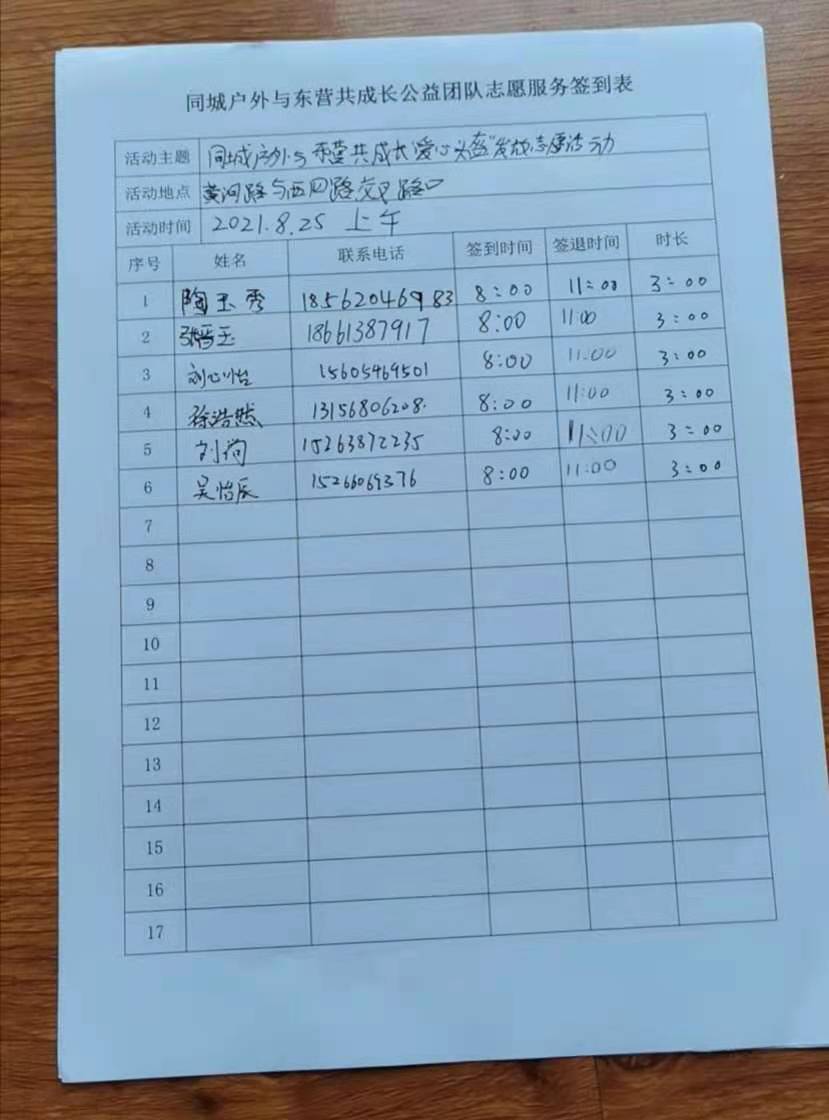 同城户外与东营共成长公益团队志愿服务签到表
活动主题 同城户外与东营共成长"爱心头盔"发放志愿活动
活动地点 黄河路与西四路交叉路口
活动时间 2021.8.25 上午
序号 姓名 联系电话 签到时间 签退时间 时长
1 陶玉秀 18562046983 8:00 11:00 3:00
2 玉 18661387917 8:00 11:00 3:00
3 刘心怡 15605469501 8:00 11:00 3:00
4 徐浩然 13156806208. 8:00 11:00 3:00
5 刘 15263872235 8:00 11:00 3:00
6 吴怡辰 15266069376 8:00 11:00 3:00
7
8
9
10
11
12
13
14
15
16
17